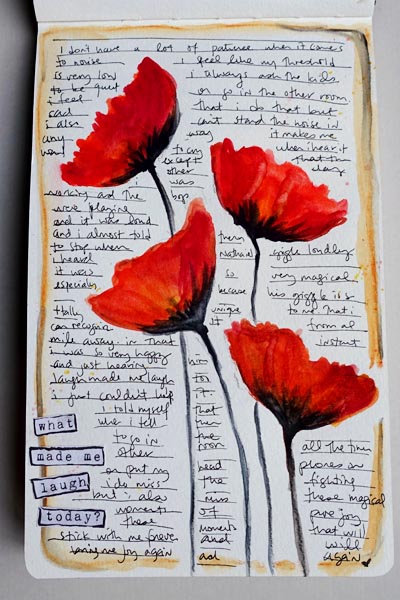 I don't have a lot of patience when it comes
to noise I feel like my threshold
is very low I always ask the kids
to be quiet or go in the other room
I feel that I do that but
sad can't stand the noise in
I also way it makes me
way when I hear it
way! to cry that
except day
other
was I
working and the boys
were playing
and it was loud
and I almost told them giggle loudly
to stop when Nathaniel
I heard so very magical
it was because his giggle is so
especially unique to me that I
it from an
totally instant
can recognize
mile away. in that
I was so very happy him
and just hearing for
laugh made me laugh it.
I just couldn't help that
I told myself then
what when I tell the
to go in room
made me other all the time
or put my head phones or
laugh I do miss the fighting
but I also miss these magical
today? moments of pure joy
these moments that will
stick with me and will
bring me joy again and again